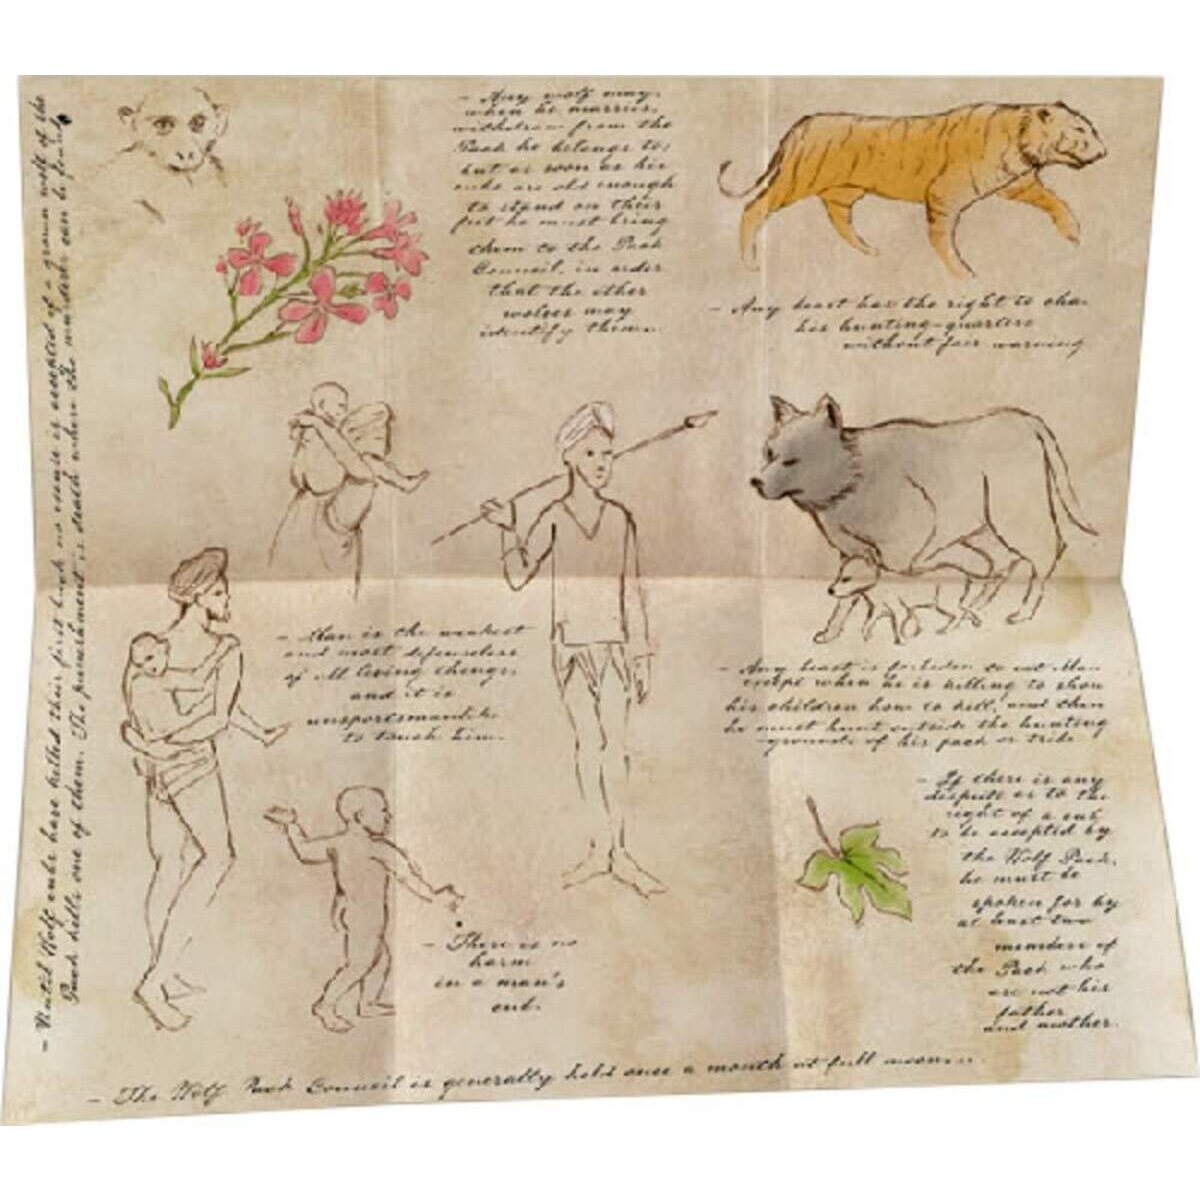 - Any wolf may,
when he marries,
withdraw from the
Pack he belongs to;
but as soon as his
cubs are old enough
to stand on their
feet he must bring
them to the Pack
Council, in order
that the other
wolves may
identify them.
- Any beast has the right to
his hunting-quarters
without fair warning
- Man is the weakest
and most defenseless
of all living things,
and it is
unsportsmanlike
to touch him.
- Any beast is forbiden to eat Man
except when he is killing to show
his children how to kill, and then
he must hunt outside the hunting
-grounds of his pack or tribe
- If there is any
dispute as to the
right of a cub
to be accepted by
the Wolf Pack,
he must be
spoken for by
at least two
members of
the Pack who
are not his
father
and mother.
- There is no
harm
in a man's
cub.
- Until Wolf cubs have killed their first buck no excuse is accepted if a grown wolf of the
Pack kills one of them. The punishment is death where the murderer can be found.
- The Wolf Pack Council is generally held once a month at full moon.